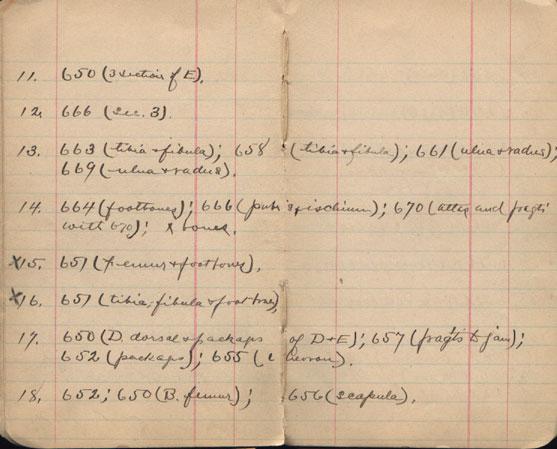 11. 650 (3 section of E).
12. 666 (sec. 3).
13. 663 (tibia & fibula); 658 (tibia & fibula); 661 (ulna & radius);
669 (ulna & radius).
14. 664 (footbones); 666 (pubis & ischium); 670 (attag and fragts
with 670); x bones.
X15. 651 (femur & footbones).
X16. 651 (tibia, fibula & foot bones)
17. 650 (D. dorsal & packages of D+E); 657 (fragts to jaw);
652 (packages); 655 (chevron).
18. 652; 650 (B. femur); 656 (scapula).